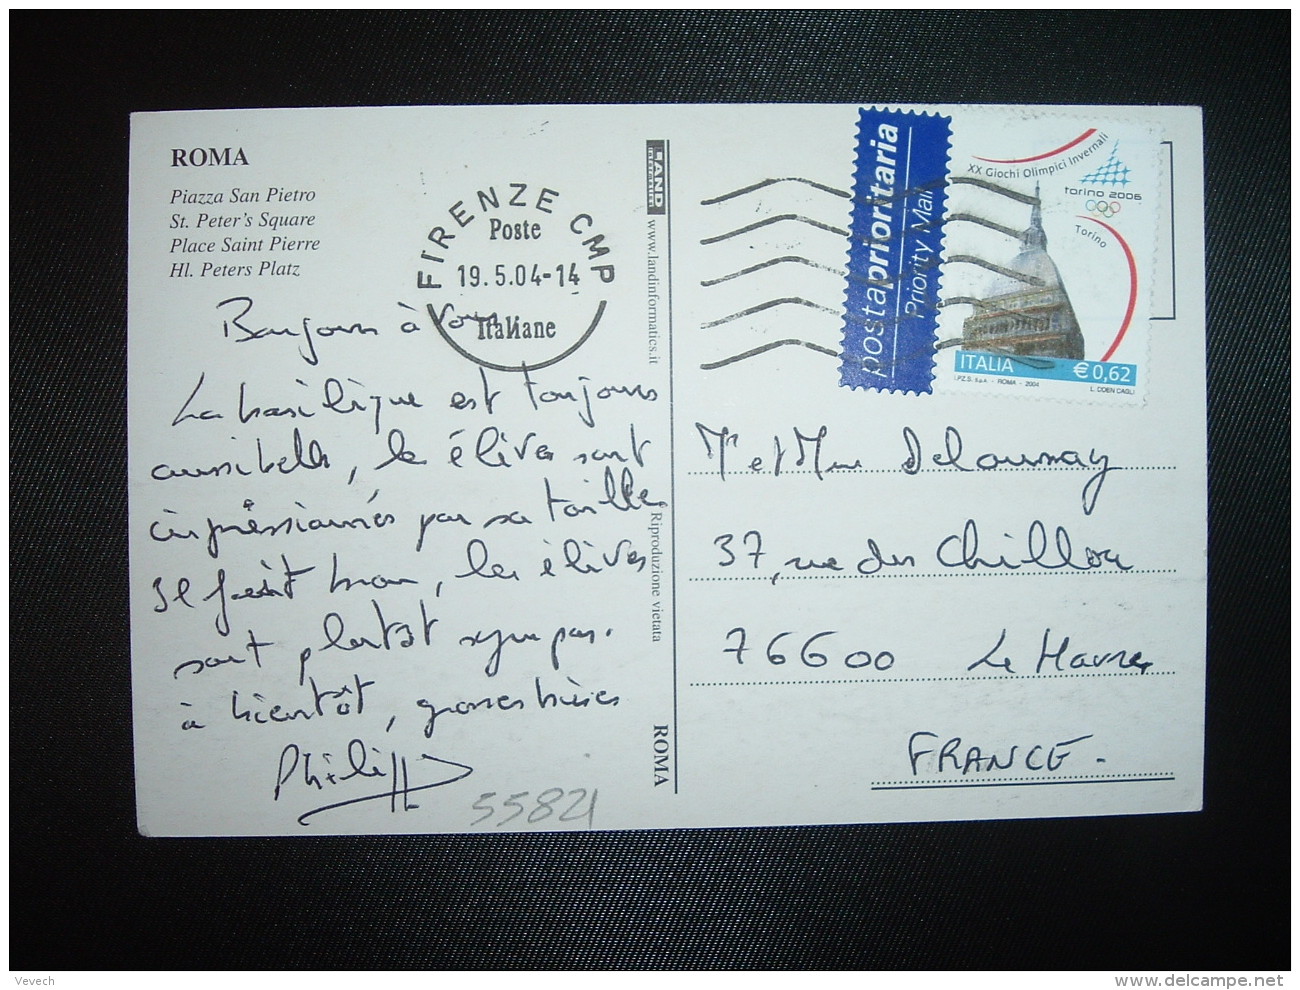 ROMA
Piazza San Pietro
St. Peter's Square
Place Saint Pierre
Hl. Peters Platz
FIRENZE CMP
Poste
19.5.04-14
Italiane
Bonjour à vous
La basilique est toujours
aussi belle, les élèves sont
impressionnés par sa taille
Il fait bon, les élèves
sont plutôt sympas.
à bientôt, grosses bises
Philippe
55821
LAND
www.landinformatics.it
Riproduzione vietata
ROMA
postaprioritaria
Priority Mail
XX Giochi Olimpici Invernali
torino 2006
Torino
ITALIA € 0,62
I.P.Z.S. S.p.A. - ROMA - 2004 L. DOEN CAGLI
Mr et Mme Delaunay
37, rue du Chillou
76600 Le Havre
FRANCE.
Vevech
http://www.delcampe.net